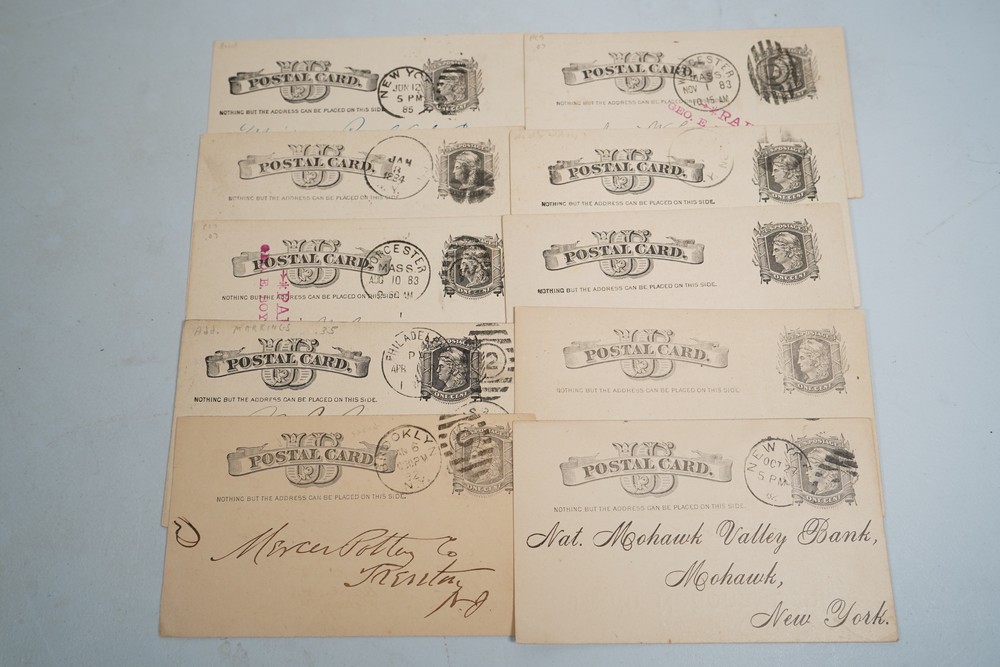 POSTAL CARD.
NEW YORK
JUN 12
5 PM
85
NOTHING BUT THE ADDRESS CAN BE PLACED ON THIS SIDE
ONE CENT
POSTAL CARD.
WORCESTER
MASS.
NOV 1 83
10 15 AM
GEO. E.
NOTHING BUT THE ADDRESS CAN BE PLACED
POSTAL CARD.
JAN
N.Y.
NOTHING BUT THE ADDRESS CAN BE PLACED ON THIS SIDE.
POSTAL CARD.
NOTHING BUT THE ADDRESS CAN BE PLACED ON THIS SIDE.
ONE CENT
POSTAL CARD.
WORCESTER
MASS.
AUG 10 83
AM
E. BOY
NOTHING BUT THE ADDRESS CAN BE PLACED ON THIS SIDE
ONE CENT
POSTAL CARD.
NOTHING BUT THE ADDRESS CAN BE PLACED ON THIS SIDE.
U.S. POSTAGE
ONE CENT
Add. MARKINGS .35
POSTAL CARD.
PHILADEL
APR
2
NOTHING BUT THE ADDRESS CAN BE PLACED ON THIS SIDE.
ONE CENT
POSTAL CARD.
NOTHING BUT THE ADDRESS CAN BE PLACED ON THIS SIDE.
ONE CENT
POSTAL CARD.
BROOKLYN
6
PM
N.Y.
NOTHING BUT THE ADDRESS CAN BE PLACED ON THIS SIDE.
ONE CENT
Mercer Pottery Co
Trenton
N.J.
POSTAL CARD.
NEW YORK
OCT 2
5 PM
NOTHING BUT THE ADDRESS CAN BE PLACED ON THIS SIDE.
ONE CENT
Nat. Mohawk Valley Bank,
Mohawk,
New York.